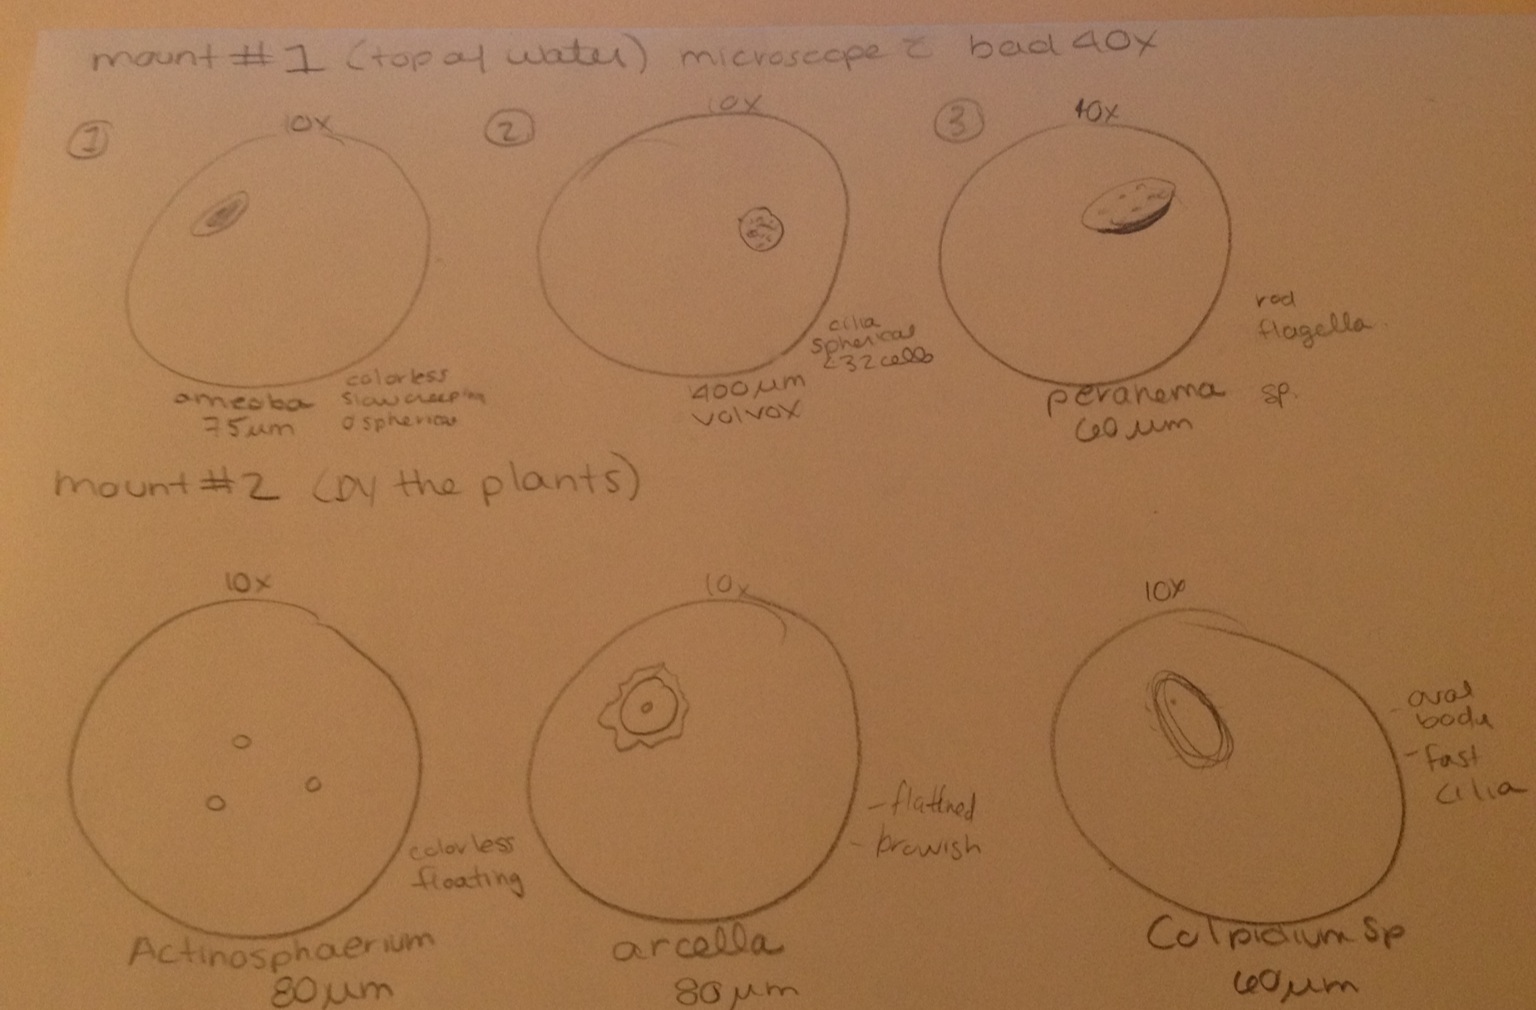 mount #1 (top of water) microscope c̄ bad 40x
1
10x
ameoba
75µm
colorless
slow creeping
spherical
2
10x
cilia
spherical
<32 cells
400µm
volvox
3
40x
rod
flagella
peranema sp.
60µm
mount #2 (by the plants)
10x
colorless
floating
Actinosphaerium
80µm
10x
- flattned
- browish
arcella
80µm
10x
- oval
body
- fast
cilia
Colpidium Sp
60µm